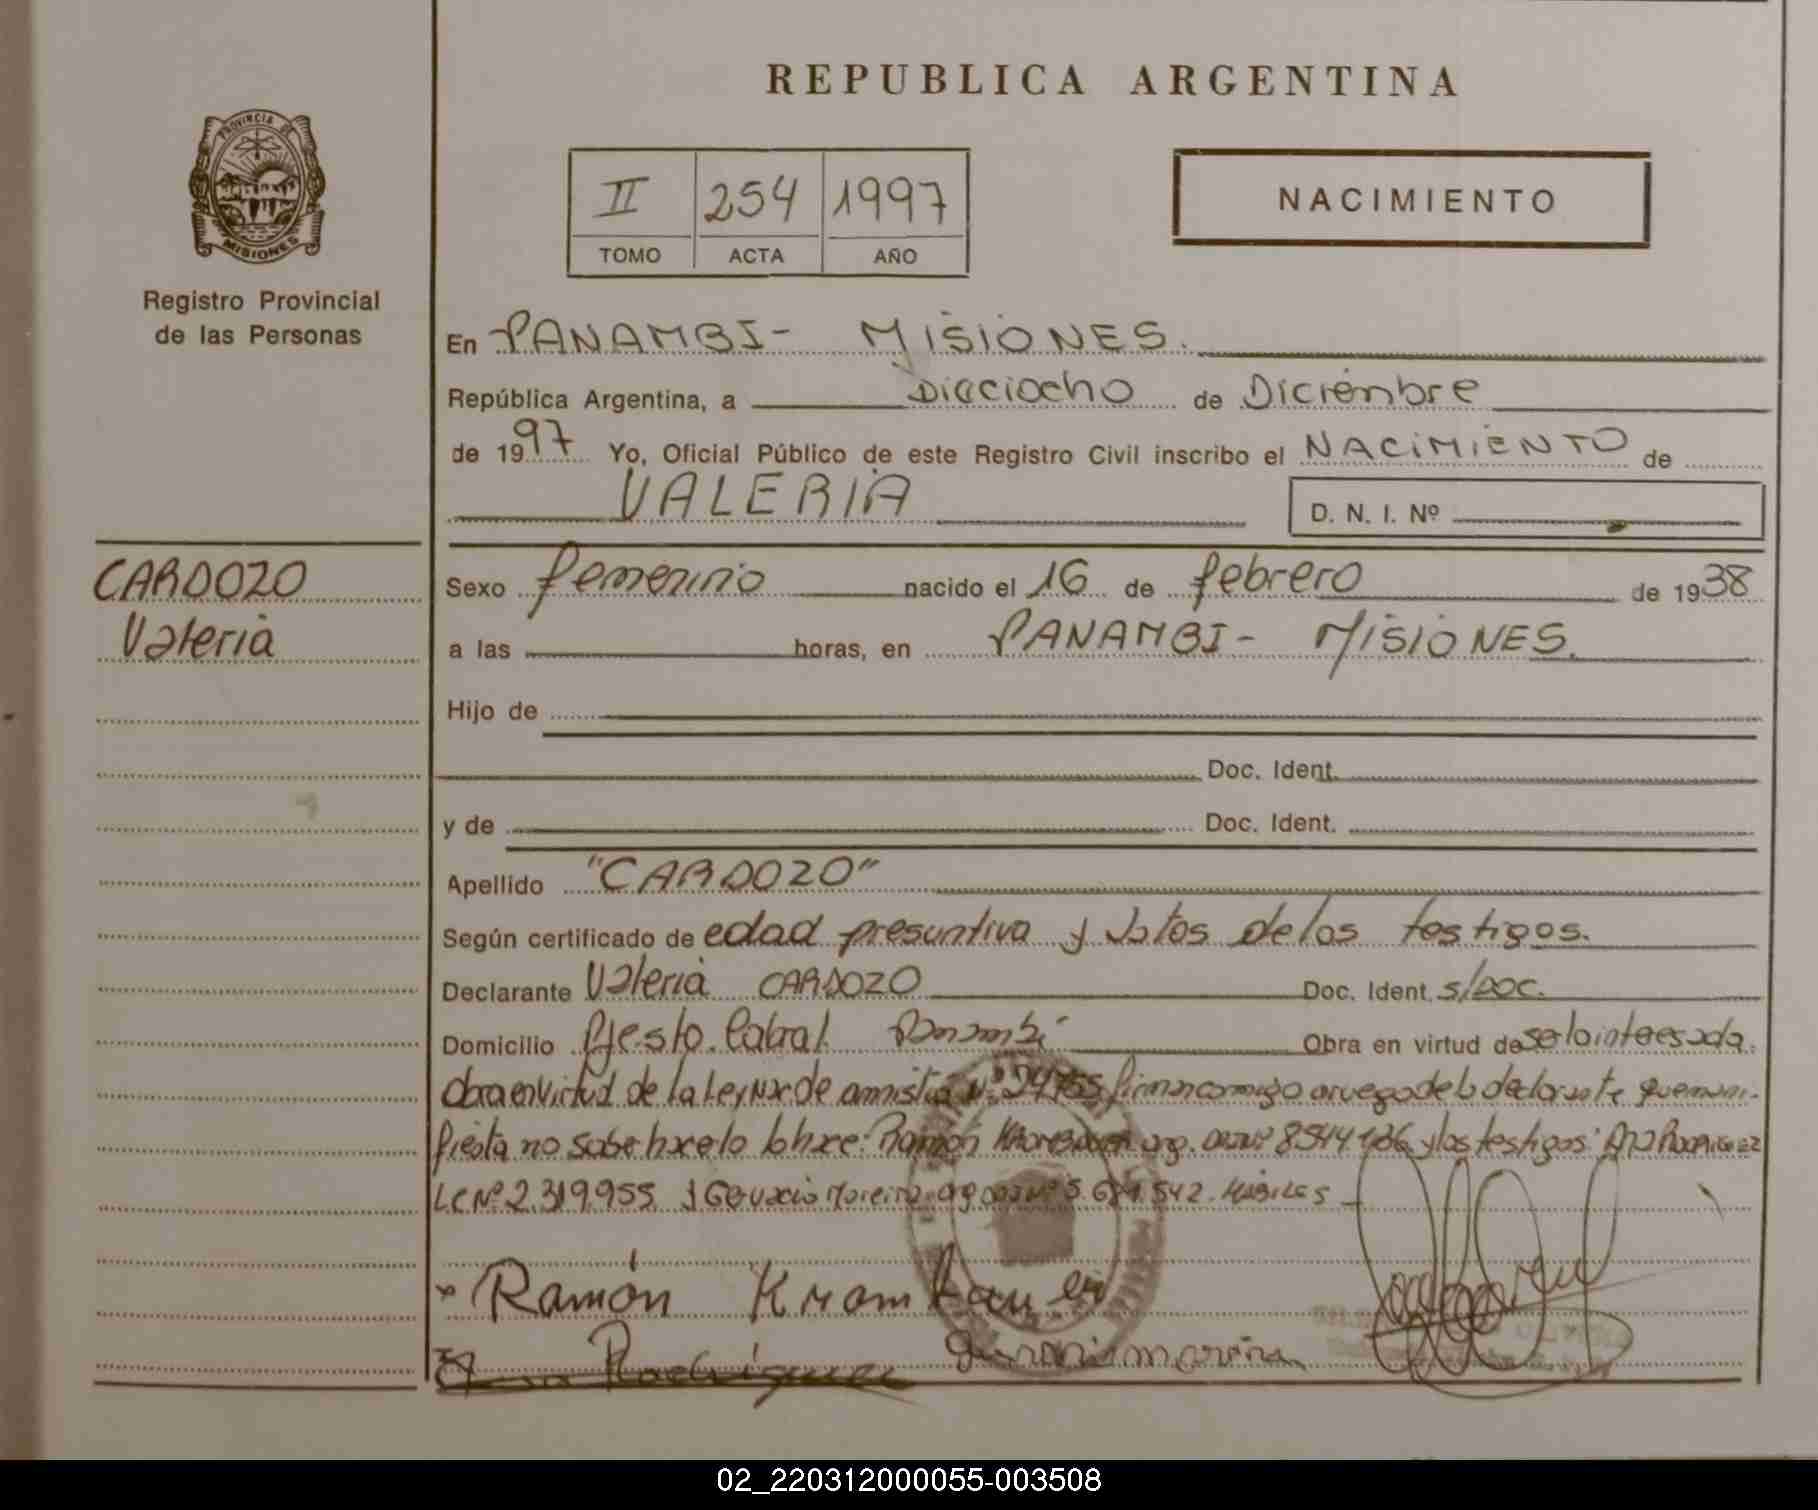 REPUBLICA ARGENTINA
PROVINCIA DE
MISIONES
Registro Provincial
de las Personas
II 254 1997
TOMO ACTA AÑO
NACIMIENTO
En PANAMBI- MISIONES.
República Argentina, a Dieciocho de Diciembre
de 1997 Yo, Oficial Público de este Registro Civil inscribo el NACIMIENTO de
VALERIA D. N. I. Nº
CARDOZO
Valeria
Sexo femenino nacido el 16 de febrero de 1938
a las horas, en PANAMBI- MISIONES.
Hijo de
Doc. Ident.
y de Doc. Ident.
Apellido "CARDOZO"
Según certificado de edad presuntiva y datos de los testigos.
Declarante Valeria CARDOZO Doc. Ident. s/DOC.
Domicilio Pje. sto. Cabral Panambí Obra en virtud de
obra en virtud de la Ley de amnistía Nº 24755 firman conmigo a ruego de la declarante que mani-
fiesta no saber hacerlo lo hace: Ramón arg. DNI Nº 8544 y los testigos: Ana RODRIGUEZ
LC Nº 2.319.955 y Moreira arg DNI Nº 5. .542. Hábiles
Ramón
Ana Rodriguez
02_220312000055-003508